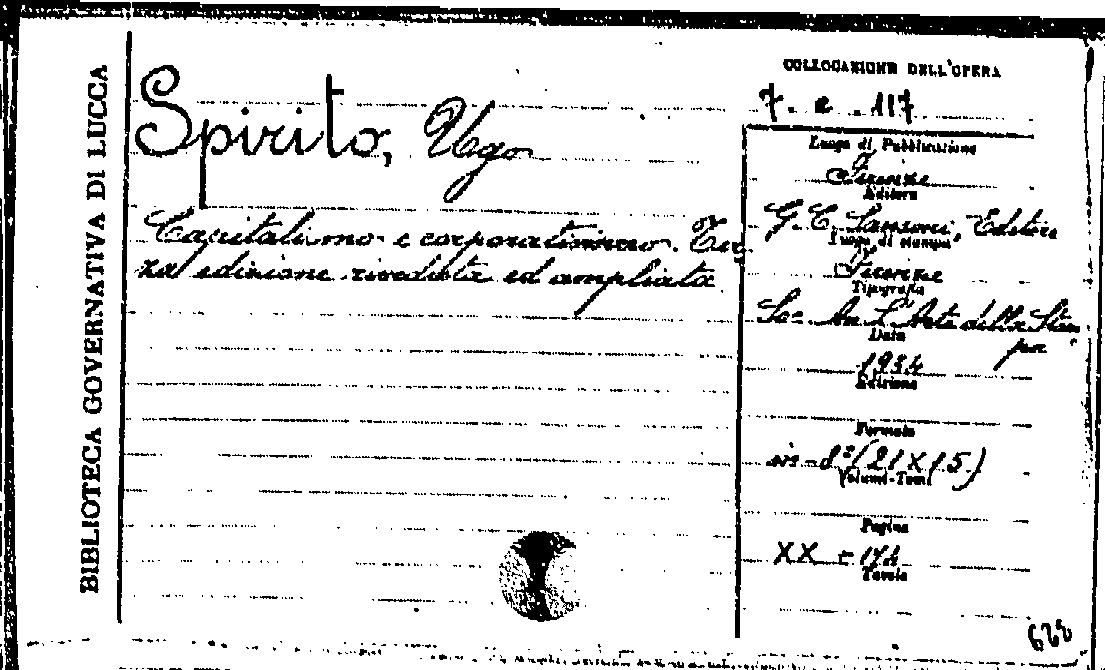 BIBLIOTECA GOVERNATIVA DI LUCCA
Spirito, Ugo
Capitalismo e corporativismo. Ter
za edizione riveduta ed ampliata
COLLOCAZIONE DELL'OPERA
7. e. 117
Luogo di Pubblicazione
Firenze
Editore
G. C. Sansoni, Editore
Luogo di stampa
Firenze
Tipografia
Soc. An. L'Arte della Stam
pa
Data
1934
Edizione
Formato
in-8° (21X15)
Volumi-Tomi
Pagine
XX +
Tavole